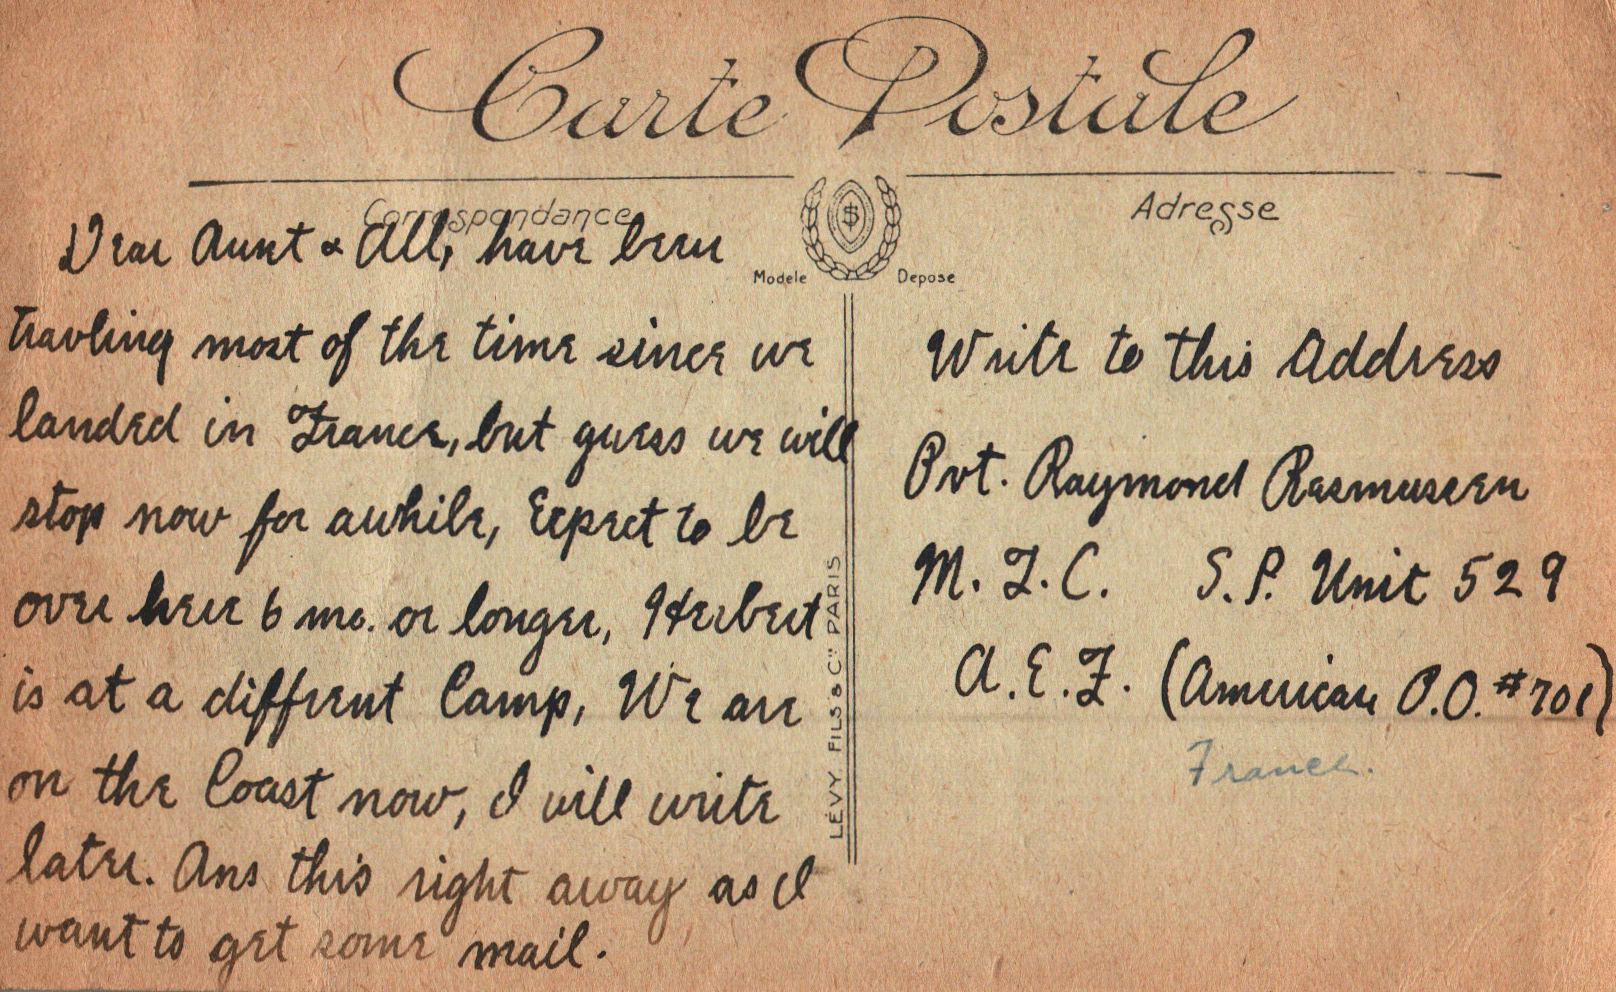 Carte Postale
Correspondance
Adresse
Modele Depose
Dear Aunt & All, have been
travling most of the time since we
landed in France, but guess we will
stop now for awhile, Expect to be
over here 6 mo. or longer, Herbert
is at a different Camp, We are
on the Coast now, I will write
later. Ans this right away as I
want to get some mail.
LÉVY FILS & Cie PARIS
Write to this Address
Pvt. Raymond Rasmussen
M. T. C. S. P. Unit 529
A. E. F. (American P.O. #701)
France.